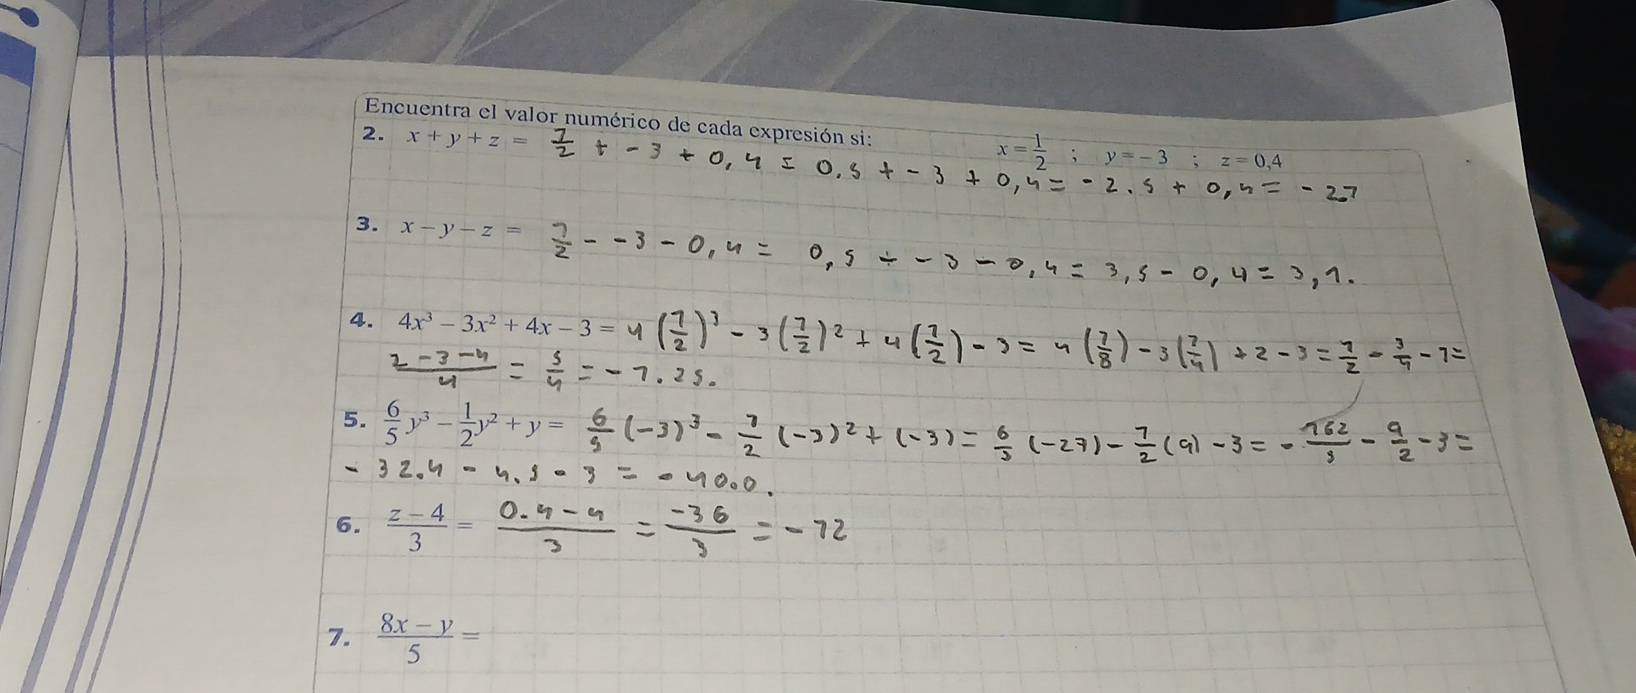 Encuentra el valor numérico de cada expresión si: x = 1/2 ; y = -3 ; z = 0,4
2. x + y + z = 1/2 + -3 + 0,4 = 0.5 + -3 + 0,4 = -2.5 + 0,4 = -2.7
3. x - y - z = 1/2 - -3 - 0,4 = 0,5 ÷ -3 - 0,4 = 3,5 - 0,4 = 3,1.
4. 4x³ - 3x² + 4x - 3 = 4(1/2)³ - 3(1/2)² + 4(1/2) - 3 = 4(1/8) - 3(1/4) + 2 - 3 = 1/2 - 3/4 - 1 =
2-3-4/4 = 5/4 = -1.25.
5. 6/5 y³ - 1/2 y² + y = 6/5 (-3)³ - 1/2 (-3)² + (-3) = 6/5 (-27) - 1/2 (9) - 3 = - 162/5 - 9/2 - 3 =
- 32.4 - 4.5 - 3 = - 40.0.
6. z - 4/3 = 0.4 - 4/3 = -36/3 = -12
7. 8x - y/5 =